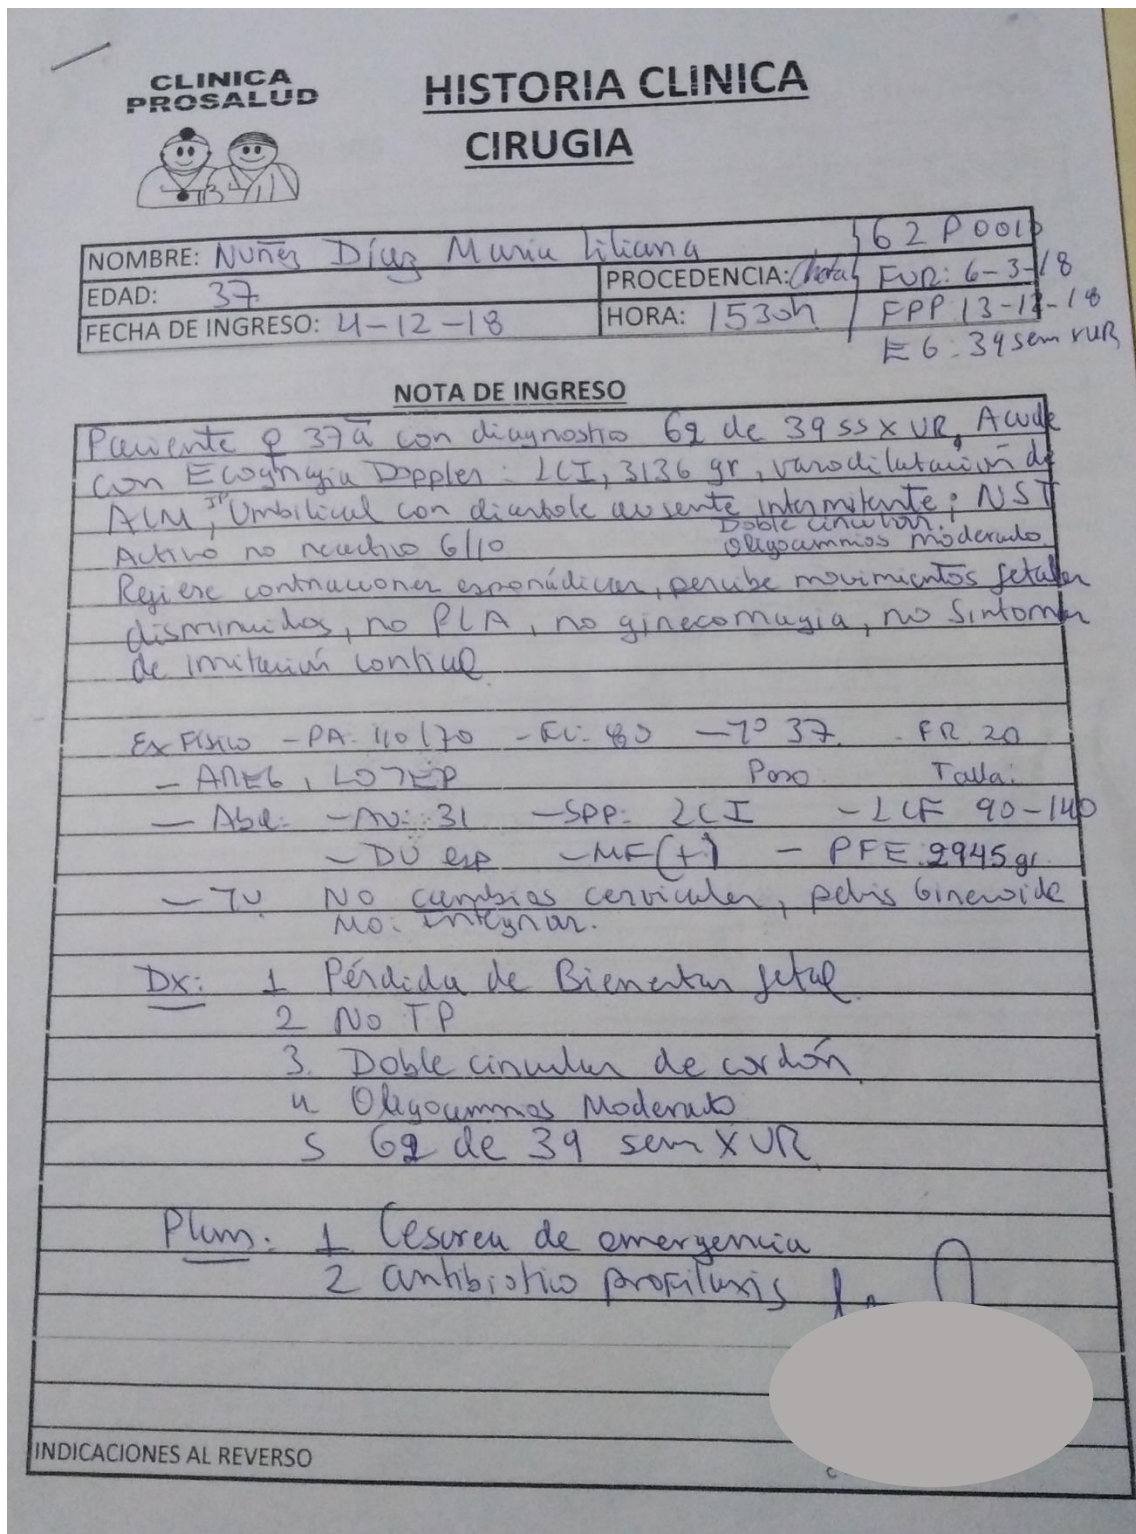 CLINICA
PROSALUD
HISTORIA CLINICA
CIRUGIA
NOMBRE: Nuñez Díaz Maria Liliana
G2 P001
EDAD: 37
PROCEDENCIA: Chota
FUR: 6-3-18
FECHA DE INGRESO: 4-12-18
HORA: 1530h
FPP 13-12-18
EG: 39 sem x UR
NOTA DE INGRESO
Paciente ♀ 37a con diagnostico G2 de 39 ss x UR, Acude
con Ecografia Doppler: LCI, 3136 gr, vasodilatación de
ACM, IP Umbilical con diastole ausente intermitente; NST
Doble circular.
Activo no reactivo 6/10
Oligoamnios moderado
Refiere contracciones esporádicas, percibe movimientos fetales
disminuidos, no PLA, no ginecorragia, no Sintomas
de irritación cortical
Ex Fisico - PA: 110/70 - FC: 80 - Tº 37 - FR 20
- AREG, LOTEP Peso Talla:
- Abd: - AU: 31 - SPP: LCI - LCF 90-140
- DU esp - MF (+) - PFE: 2945 gr
- TV No cambios cervicales, pelvis Ginecoide
Mo: integras.
Dx: 1 Pérdida de Bienestar fetal
2 No TP
3. Doble circular de cordón
4 Oligoamnios Moderado
5 G2 de 39 sem x UR
Plan: 1 Cesarea de emergencia
2 antibiotico profilaxis
INDICACIONES AL REVERSO